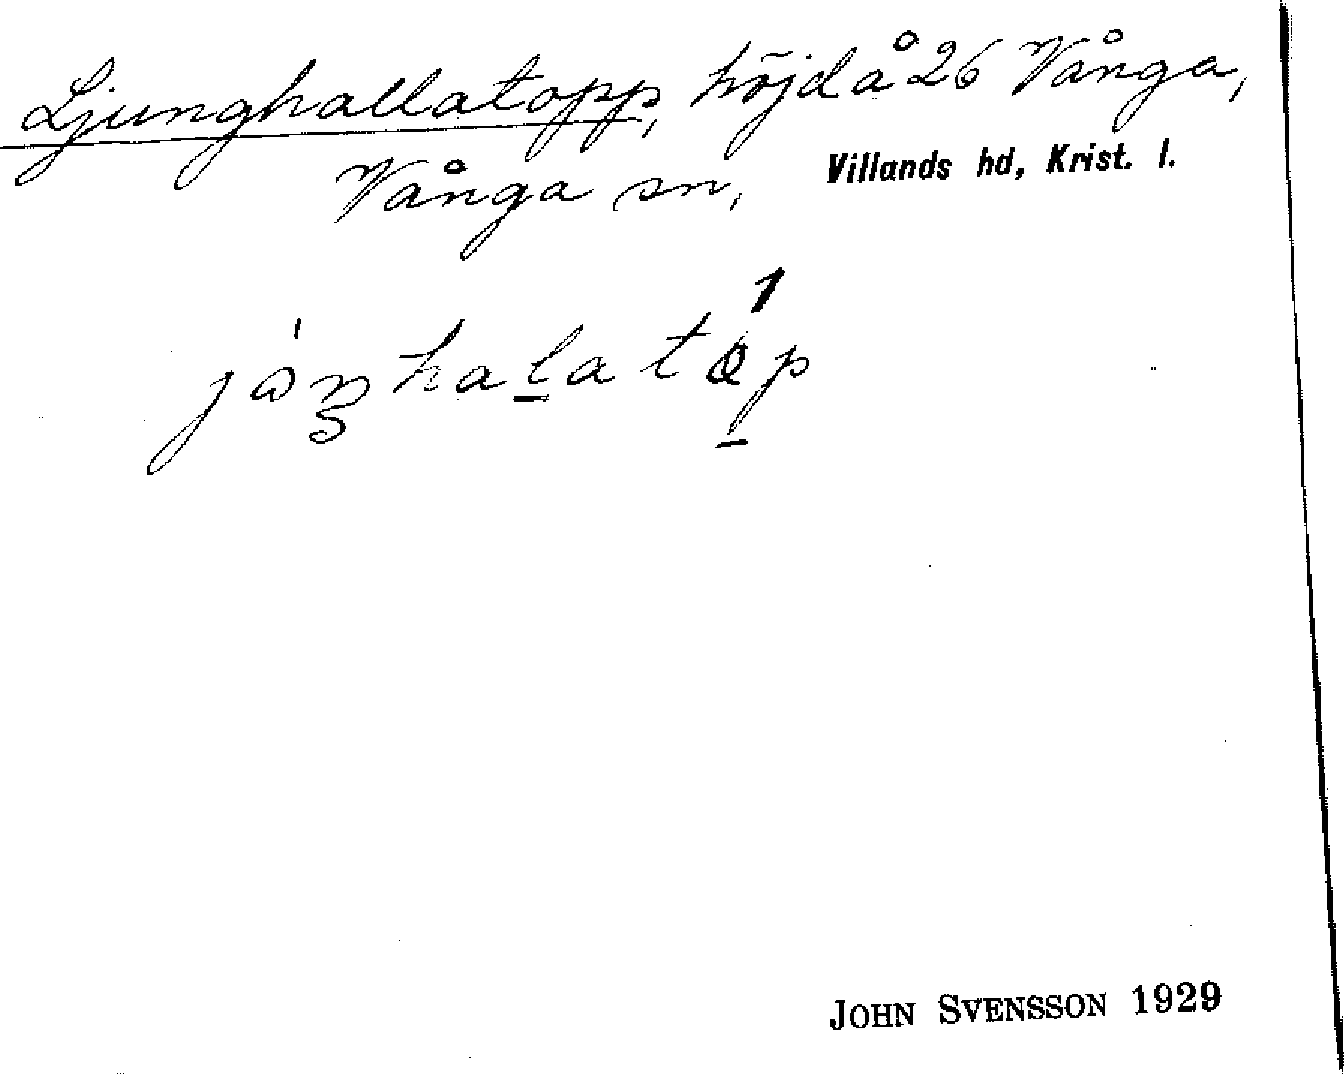 Ljunghallatopp, höjd å 26 Vånga,
Vånga sn,
Villands hd, Krist. l.
JOHN SVENSSON 1929